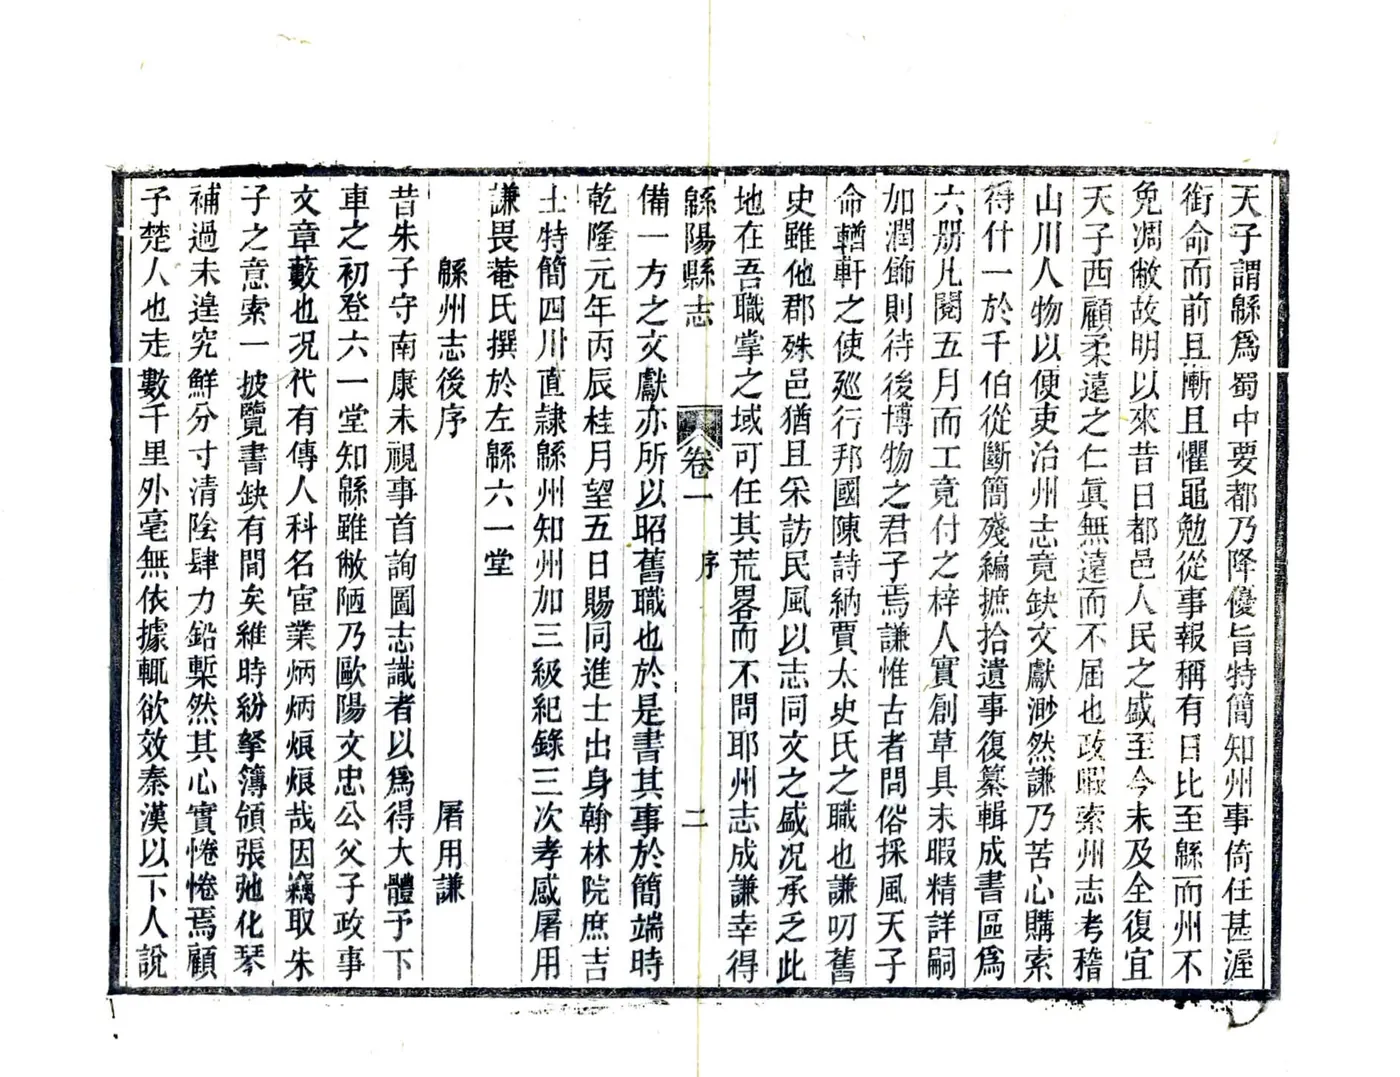 天子謂緜爲蜀中要都乃降優旨特簡知州事倚任甚渥
銜命而前且慚且懼黽勉從事報稱有日比至緜而州不
免凋敝故明以來昔日都邑人民之盛至今未及全復宜
天子西顧柔遠之仁眞無遠而不届也政暇索州志考稽
山川人物以便吏治州志竟缺文獻渺然謙乃苦心購索
得什一於千伯從斷簡殘編摭拾遺事復纂輯成書區爲
六册凡閱五月而工竟付之梓人實創草具未暇精詳嗣
加潤飾則待後博物之君子焉謙惟古者問俗採風天子
命輶軒之使廵行邦國陳詩納賈太史氏之職也謙叨舊
史雖他郡殊邑猶且采訪民風以志同文之盛况承乏此
地在吾職掌之域可任其荒畧而不問耶州志成謙幸得
緜陽縣志 卷一 序 二
備一方之文獻亦所以昭舊職也於是書其事於簡端時
乾隆元年丙辰桂月望五日賜同進士出身翰林院庶吉
士特簡四川直隷緜州知州加三級紀錄三次孝感屠用
謙畏菴氏撰於左緜六一堂
緜州志後序 屠用謙
昔朱子守南康未視事首詢圖志識者以爲得大體予下
車之初登六一堂知緜雖敝陋乃歐陽文忠公父子政事
文章藪也况代有傳人科名宦業炳炳烺烺哉因竊取朱
子之意索一披覽書缺有間矣維時紛拏簿領張弛化琴
補過未遑究鮮分寸清陰肆力鉛槧然其心實惓惓焉顧
予楚人也走數千里外毫無依據輒欲效秦漢以下人說